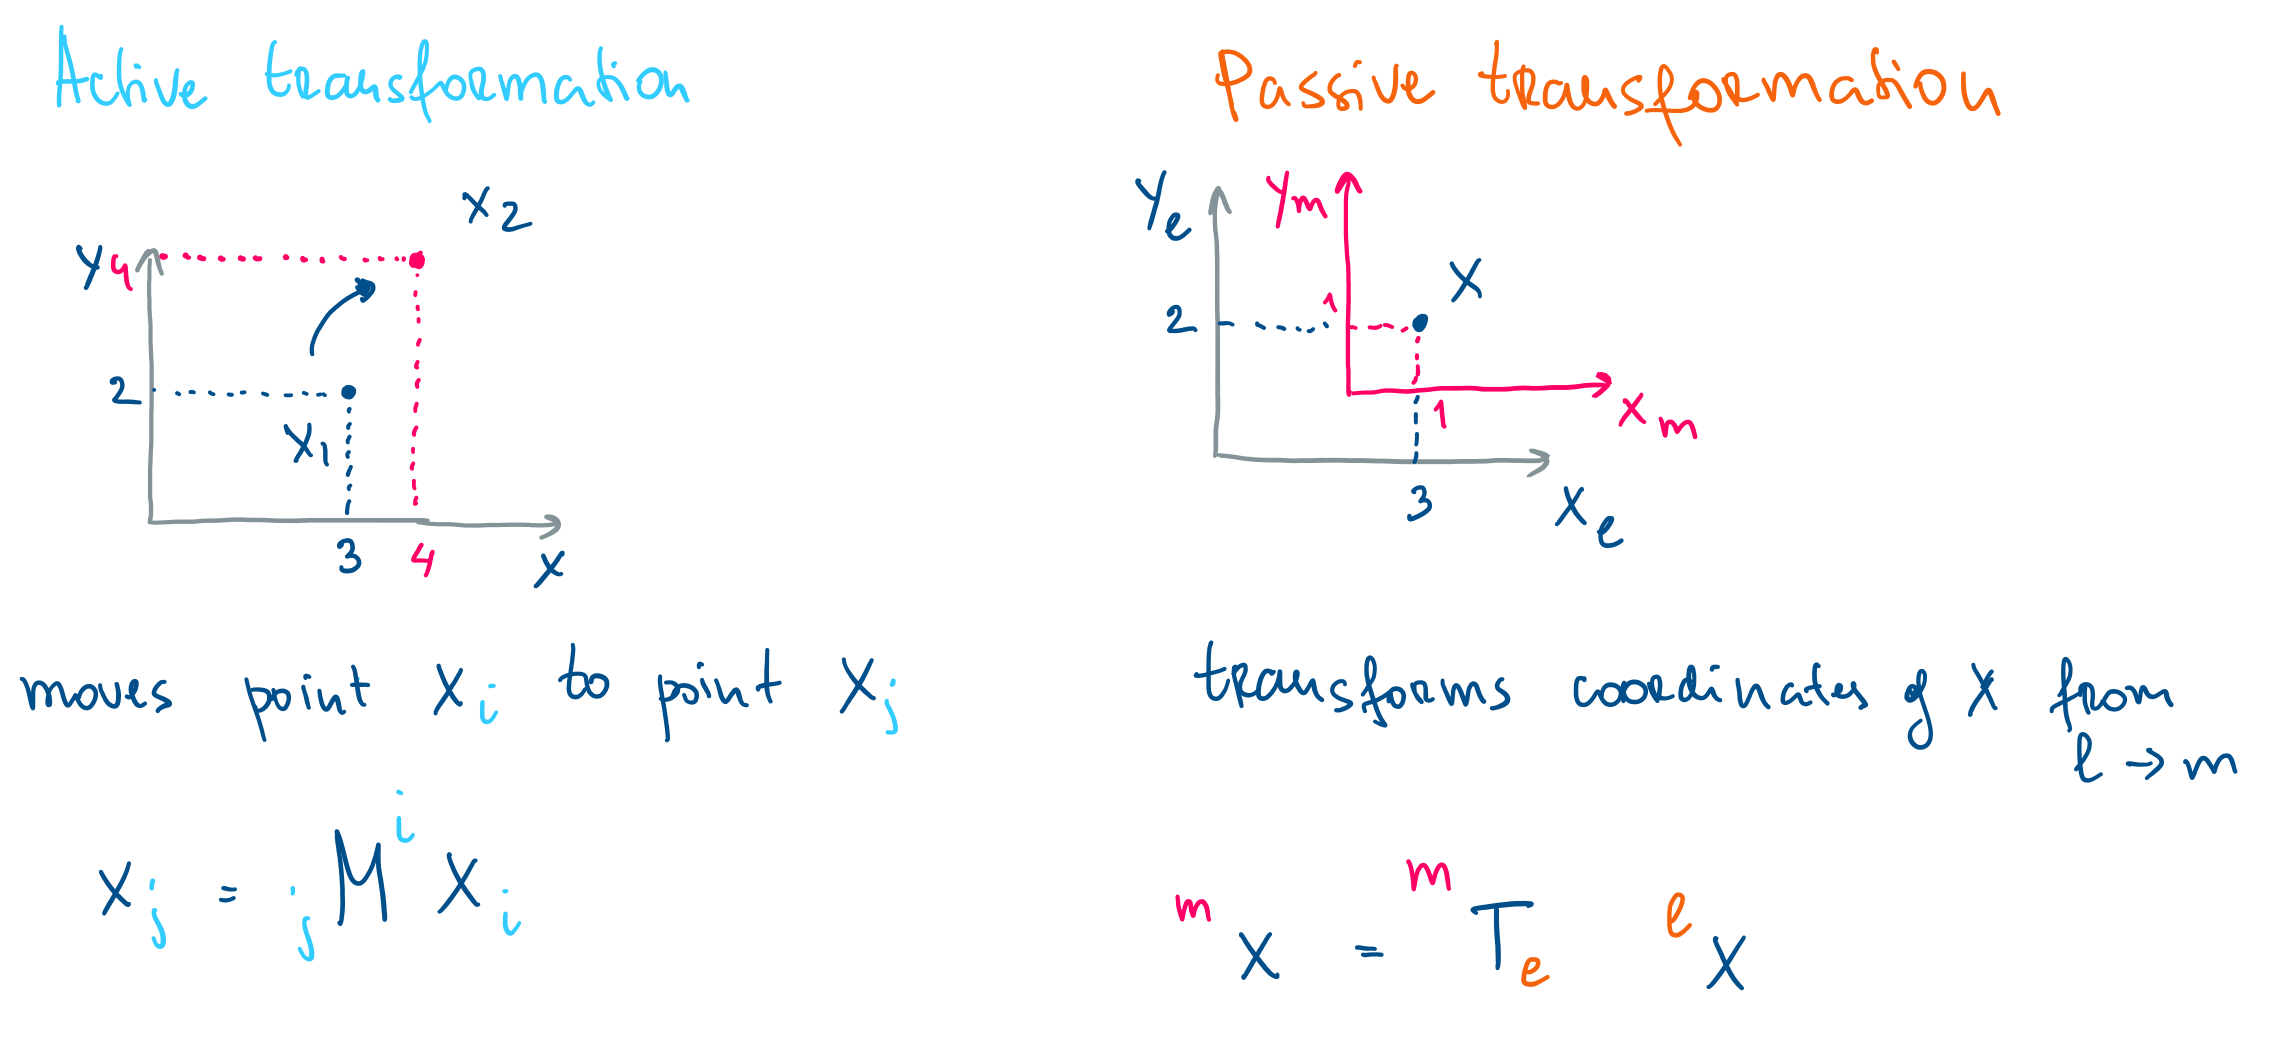 Active transformation
x₂
y 4
2
x₁
3 4 x
moves point xᵢ to point xⱼ
xⱼ = ⱼMⁱ xᵢ
Passive transformation
yₑ yₘ
x
1
2
1
xₘ
3
xₑ
transforms coordinates of x from
l → m
ᵐx = ᵐTₑ ˡx